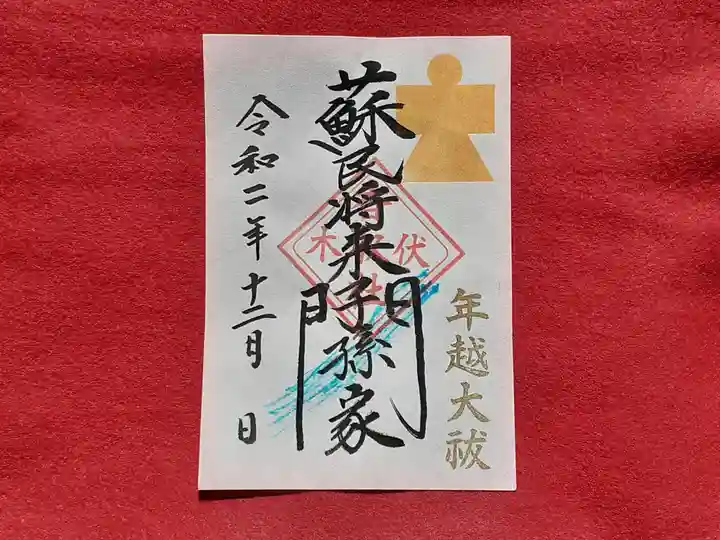 年越大祓
蘇民将来子孫家門
伏木
社
令和二年十二月 日